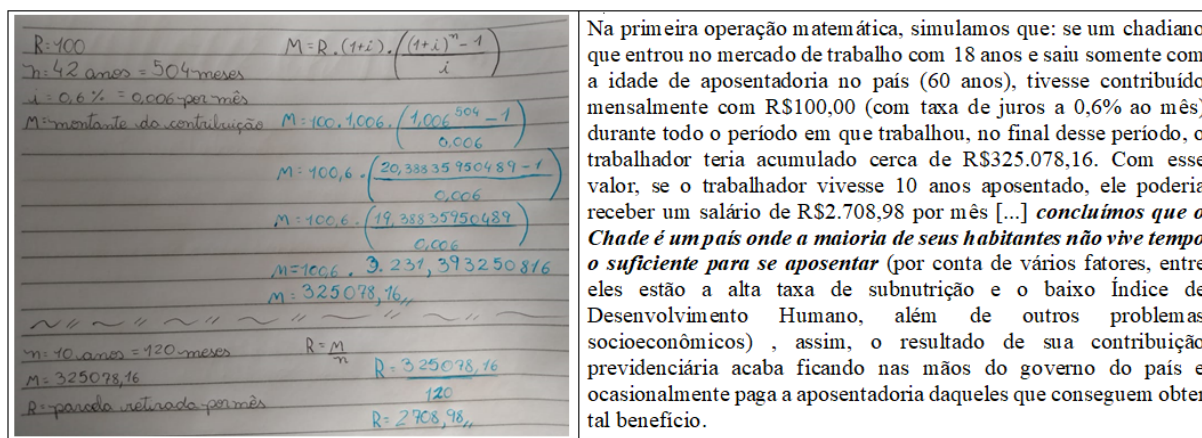 R=100
M=R.(1+i).((1+i)^n - 1 / i)
n=42 anos = 504 meses
i=0,6% = 0,006 por mês
M=montante da contribuição
M=100.1,006.(1,006^504 - 1 / 0,006)
M=100,6.(20,38835950489 - 1 / 0,006)
M=100,6.(19,38835950489 / 0,006)
M=100,6. 3.231,393250816
M=325078,16,,
n=10 anos = 120 meses
R=M/n
M=325078,16
R=325078,16 / 120
R=parcela retirada por mês
R=2708,98,,
Na primeira operação matemática, simulamos que: se um chadiano
que entrou no mercado de trabalho com 18 anos e saiu somente com
a idade de aposentadoria no país (60 anos), tivesse contribuído
mensalmente com R$100,00 (com taxa de juros a 0,6% ao mês)
durante todo o período em que trabalhou, no final desse período, o
trabalhador teria acumulado cerca de R$325.078,16. Com esse
valor, se o trabalhador vivesse 10 anos aposentado, ele poderia
receber um salário de R$2.708,98 por mês [...] concluímos que o
Chade é um país onde a maioria de seus habitantes não vive tempo
o suficiente para se aposentar (por conta de vários fatores, entre
eles estão a alta taxa de subnutrição e o baixo Índice de
Desenvolvimento Humano, além de outros problemas
socioeconômicos) , assim, o resultado de sua contribuição
previdenciária acaba ficando nas mãos do governo do país e
ocasionalmente paga a aposentadoria daqueles que conseguem obter
tal benefício.